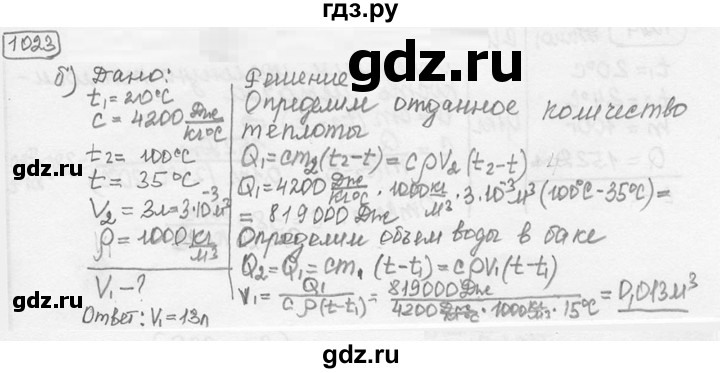 гдз.ру
1023
б) Дано:
t₁ = 20°C
c = 4200 Дж/кг°C
t₂ = 100°C
t = 35°C
V₂ = 3л = 3·10⁻³ м³
ρ = 1000 кг/м³
V₁ - ?
Ответ: V₁ = 13л
Решение
Определим отданное количество
теплоты
Q₁ = cm₂(t₂-t) = cρV₂(t₂-t)
Q₁ = 4200 Дж/кг°C · 1000 кг/м³ · 3·10⁻³ м³ (100°C - 35°C) =
= 819000 Дж
Определим объем воды в баке
Q₂ = Q₁ = cm₁(t-t₁) = cρV₁(t-t₁)
V₁ = Q₁/cρ(t-t₁) = 819000 Дж/4200 Дж/кг°C · 1000 кг/м³ · 15°C = 0,013 м³
gdz.ru
gdz.ru
gdz.ru
gdz.ru
gdz.ru
gdz.ru